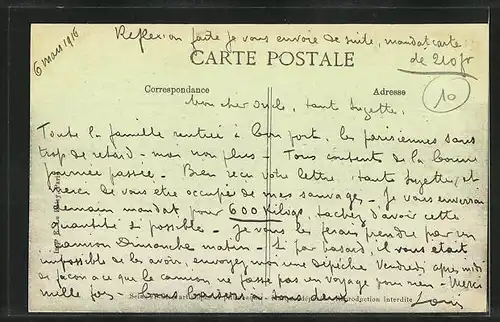 6 mars 1916
Reflexion faite je vous envoie de suite, mandat carte
de 210 fr
CARTE POSTALE
10
Correspondance
Adresse
Mon cher oncle, tante Suzette,
Toute la famille rentrée à bon port, les parisiennes sans
trop de retard - moi non plus - Tous contents de la bonne
journée passée. Bien reçu votre lettre tante Suzette, et
merci de vous etre occupée de mes sauvages - Je vous enverrai
demain mandat, pour 600 Kilogs, tachez d'avoir cette
quantité si possible - Je vous les ferais prendre par un
camion Dimanche matin - Si par hasard, il vous etait
impossible de les avoir, envoyez moi une dépêche Vendredi après midi
de façon a ce que le camion ne fasse pas un voyage pour rien - Merci
mille fois - bons baisers à tous deux
Louis
Reproduction interdite